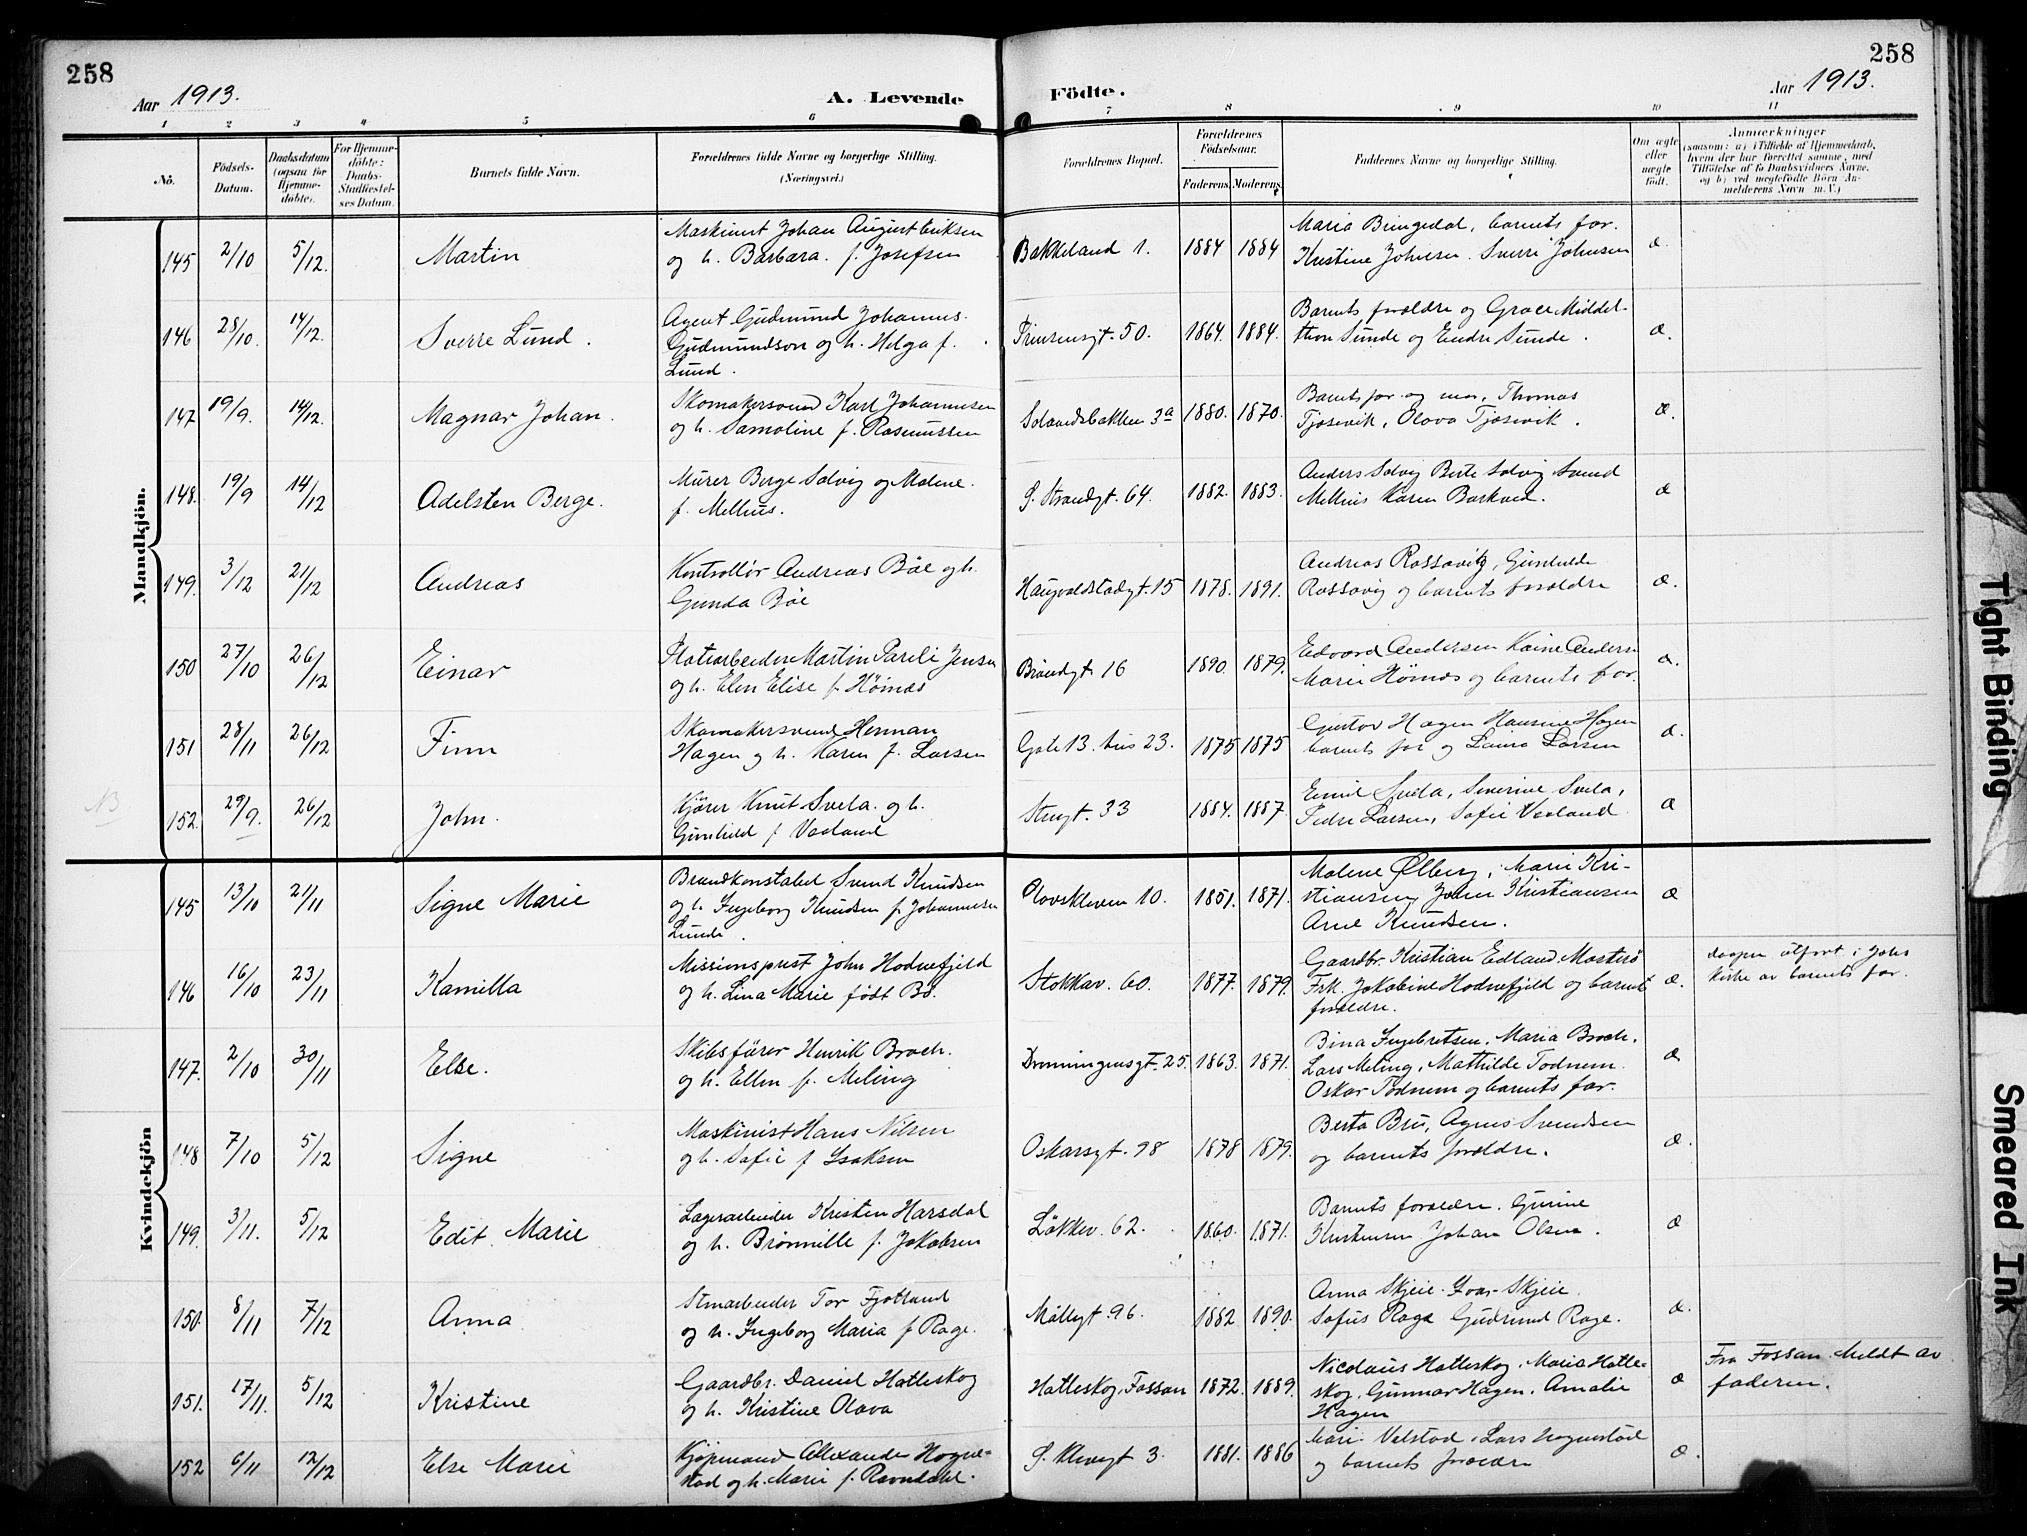 258
258
Aar 1913.
A. Levende
Födte.
Aar 1913.
1 2 3 4 5 6 7 8 9 10 11
No.
Födsels-Datum.
Daabsdatum (ogsaa for Hjemme-döbte).
For Hjemme-döbte: Daabs-Stadfæstel-ses Datum.
Barnets fulde Navn.
Forældrenes fulde Navne og borgerlige Stilling.
(Næringsvei.)
Forældrenes Bopæl.
Forældrenes Födselsaar.
Faderens. Moderens.
Faddernes Navne og borgerlige Stilling.
Om ægte eller uægte födt.
Anmærkninger
(saasom: a) i Tilfælde af Hjemmedaab, hvem der har forrettet samme, med Tilföielse af to Daabsvidners Navne, og b) ved uægtefödte Börn Anmelderens Navn m. V.)
Mandkjön.
145 2/10 5/12. Martin
Maskinist Johan August Eriksen
og h. Barbara f. Josefsen
Bakkeland 1. 1884 1884
Maria Bringedal, barnets far.
Kristine Johnsen. Sverre Johnsen
æ.
146 28/10. 14/12. Sverre Lund.
Agent Gudmund Johannes
Gudmundson og h. Helga f.
Lund.
Prinsensgt. 50. 1864. 1884.
Barnets forældre og Grace Middel-
thon Sunde og Endre Sunde.
æ.
147 19/9. 14/12. Magnar Johan.
Skomakersvend Karl Johannesen
og h. Samoline f. Rasmussen
3a 1880. 1870.
Barnets far og mor, Thomas
Tjøsevik, Olava Tjøsevik.
æ.
148. 19/9 14/12 Adelsten Berge.
Murer Berge Solvig og Malene
f. Mellius.
S. Strandgt. 64. 1882. 1883.
Anders Solvig Berte Solvig Svend
Mellius Karen Barkved.
æ
149. 3/12 21/12 Andreas
Kontrollör Andreas Böe og h.
Gunda Böe
Haugvaldstadgt. 15 1878. 1891.
Andreas Rossavig, Gunhilde
Rossavig og barnets forældre
æ.
150 27/10 26/12 Einar
Martin Pareli Jensen
og h. Elen Elise f. Höines
Brandgt 16 1890. 1879.
Edvard Andersen Andersen
Marie Höines og barnets far.
æ.
151 28/11 26/12 Finn
Skomakersvend Herman
Hagen og h. Karen f. Larsen
Gate 13. hus 23. 1875 1875
Gustav Hagen Hansine Hagen
barnets far og Laura Larsen
æ.
NB
152. 29/9. 26/12 John.
Kjører Knut Svela og h.
Gunhild f Vaaland
Strugt. 33 1884. 1887
Emil Svela, Severine Svela,
Peder Larsen, Sofie Vaaland
æ
Kvindekjön
145 13/10 21/11 Signe Marie
Brandkonstabel Svend Knudsen
og h Ingeborg Knudsen f. Johannesen
Lunde.
Olavskleven 10. 1851. 1871.
Malene Ølberg, Marie Kri-
stiansen, John Kristiansen
Arne Knudsen.
æ
146 16/10 23/11 Kamilla
Missionsprest John Hodnefjeld
og h. Lina Marie født Bø.
Stokkav. 60. 1877. 1879.
Gaardbr. Kristian Edland, Mosterö
Frk. Jakobine Hodnefjeld og barnets
forældre.
æ.
daapen utført i Johs
kirke av barnets far.
147. 2/10 30/11 Else.
Skibsfører Henrik Broch.
og h. Ellen f. Meling
Dronningensgt. 25. 1863. 1871.
Bina Ingebretsen, Maria Broch,
Lars Meling, Mathilde Todnem
Oskar Todnem og barnets far.
æ
148 7/10 5/12 Signe
Maskinist Hans Nilsen
og h. Sofie f Isaksen
Oskarsgt. 98 1878 1879.
Berta Bru, Agnes Svendsen
og barnets forældre.
æ.
149. 3/11. 5/12 Edit Marie
Lagerarbeider Kristen Harsdal
og h. Brønnille f. Jakobsen
Løkkev. 62. 1860. 1871.
Barnets forældre. Gurine
Kristensen Johan Olsen.
æ
150. 8/11 7/12 Anna
Stenarbeider Tor Fjotland
og h. Ingeborg Maria f Rage.
Møllegt. 96. 1882 1890.
Anna Skjeie. Ivar Skjeie.
Sofus Rage Gudrund Rage.
æ.
151. 17/11. 5/12 Kristine
Gaardbr. Daniel Hatleskog
og h. Kristine Olava
Hatleskog, Fossan 1872. 1889.
Nicolaus Hatleskog. Maria Hatle-
skog, Gunnar Hagen. Amalie
Hagen
æ
Fra Fossan. Meldt av
faderen.
152 6/11 12/12 Else Marie
Kjøpmand Alexander Hogne-
stad og h. Marie f. Ravndahl.
S. Klevegt 3. 1881. 1886
Marie Velstad, Lars Hognestad
og barnets forældre
æ.
Tight Binding
Smeared Ink